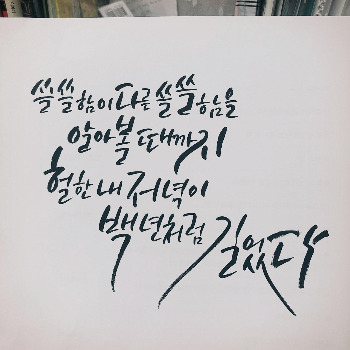 쓸쓸함이 다른 쓸쓸함을
알아볼 때까지
헐한 내 저녁이
백년처럼 길었다